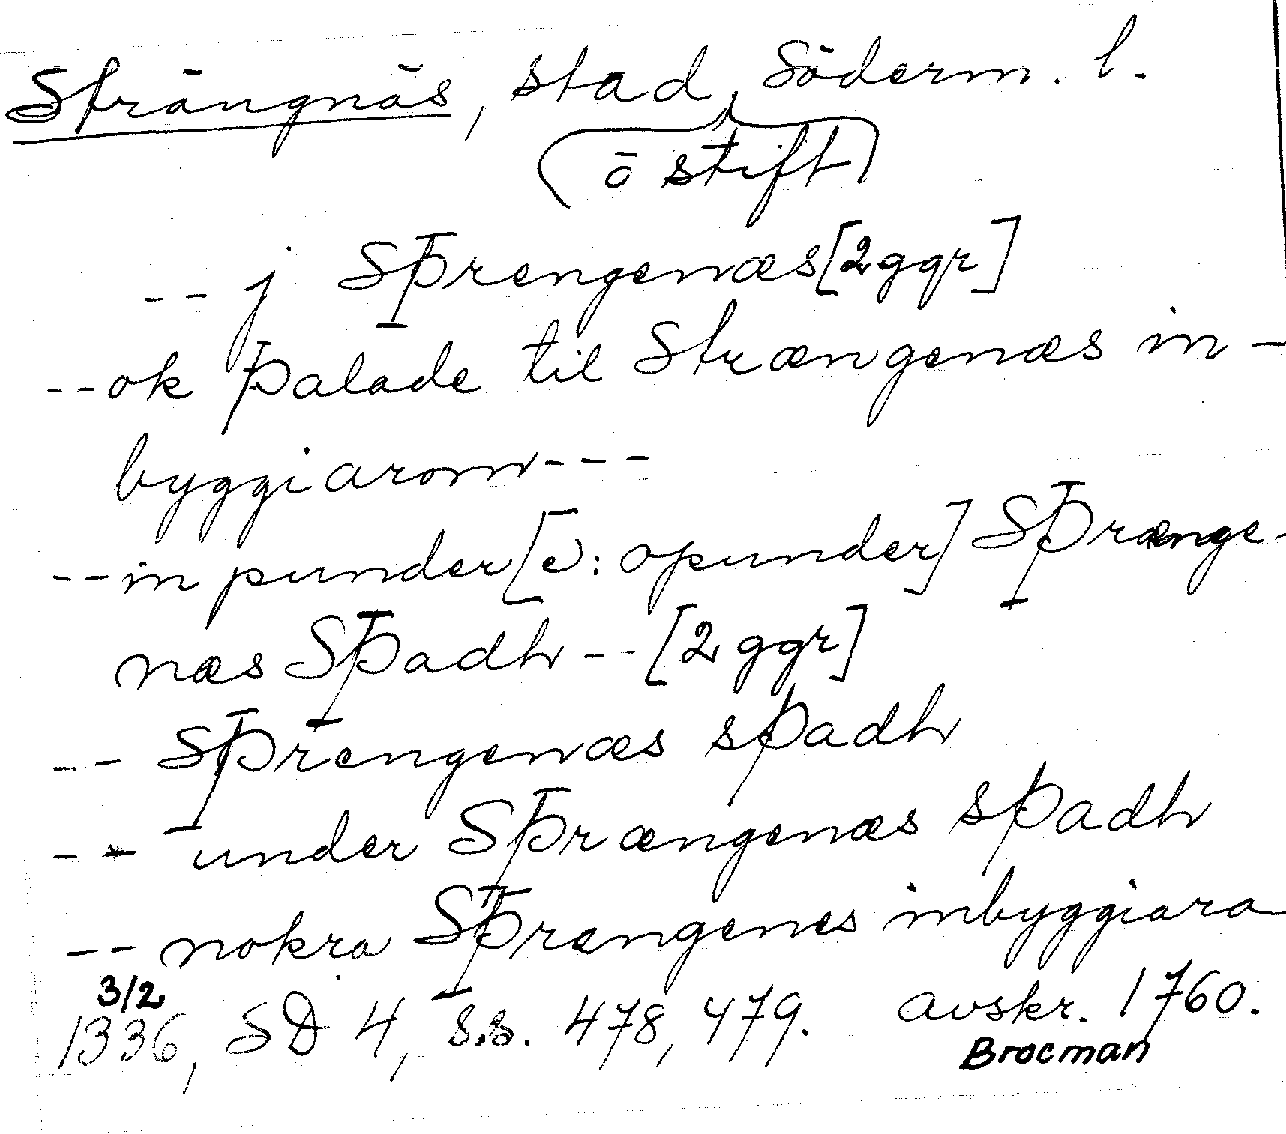 Strängnäs, stad, Söderm. l.
(o stift)
-- j Sþrengenæs [2 ggr]
-- ok þalade til Strængenæs in-
byggiarom ---
-- in punder [ɔ: opunder] Sþrænge-
næs Sþadh -- [2 ggr]
-- Sþrengenæs sþadh
-- under Sþrængenæs sþadh
-- nokra Sþrængenes inbyggiara
3/2
1336, SD 4, s.s. 478, 479. avskr. 1760.
Brocman